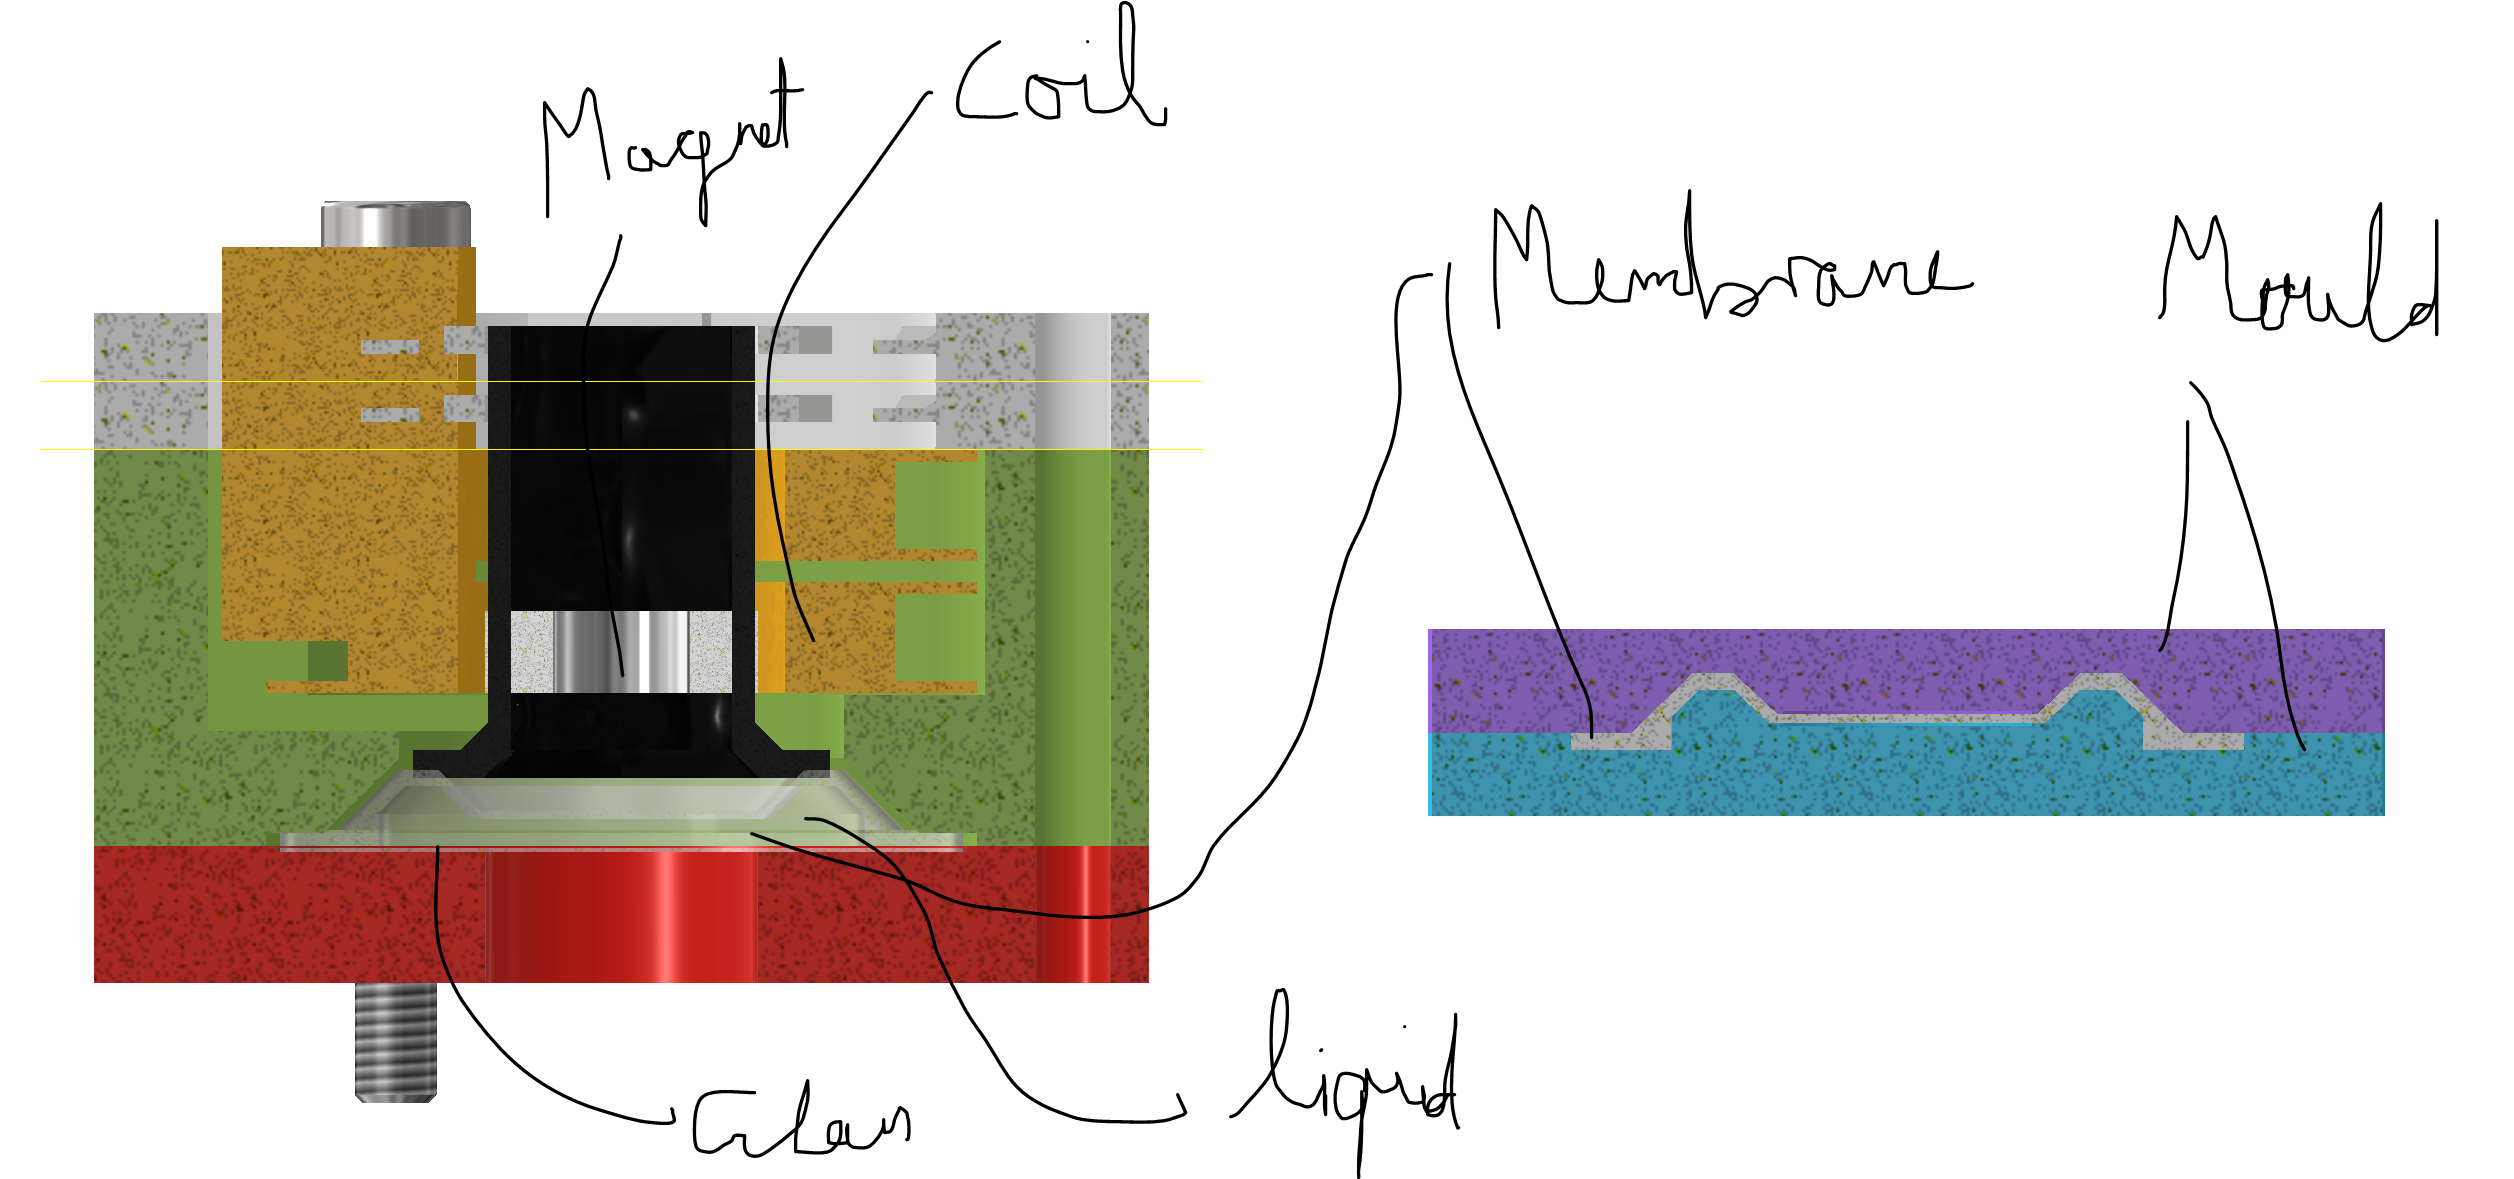 Magnet
Coil
Membrane
Mould
Glass
liquid